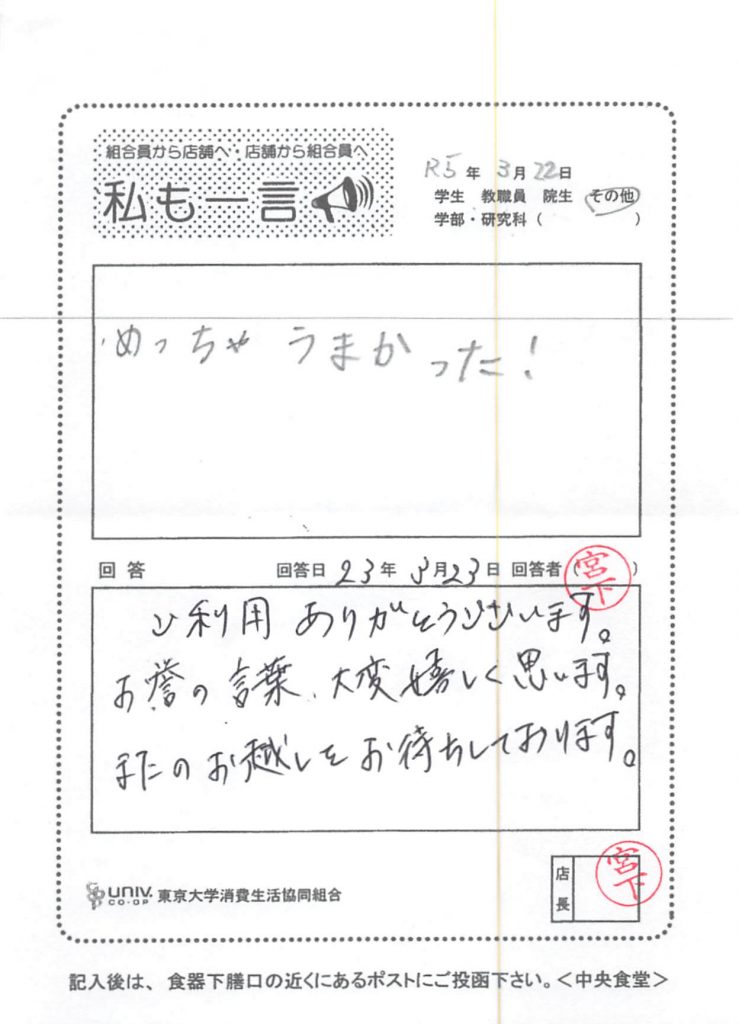 組合員から店舗へ・店舗から組合員へ
私も一言
R5年 3月 22日
学生 教職員 院生 その他
学部・研究科 ( )
めっちゃ うまかった!
回答 回答日 23年 3月23日 回答者 (宮下)
ご利用 ありがとうございます。
お誉の言葉、大変嬉しく思います。
またのお越しをお待ちしております。
UNIV. CO-OP 東京大学消費生活協同組合
店長 宮下
記入後は、食器下膳口の近くにあるポストにご投函下さい。<中央食堂>